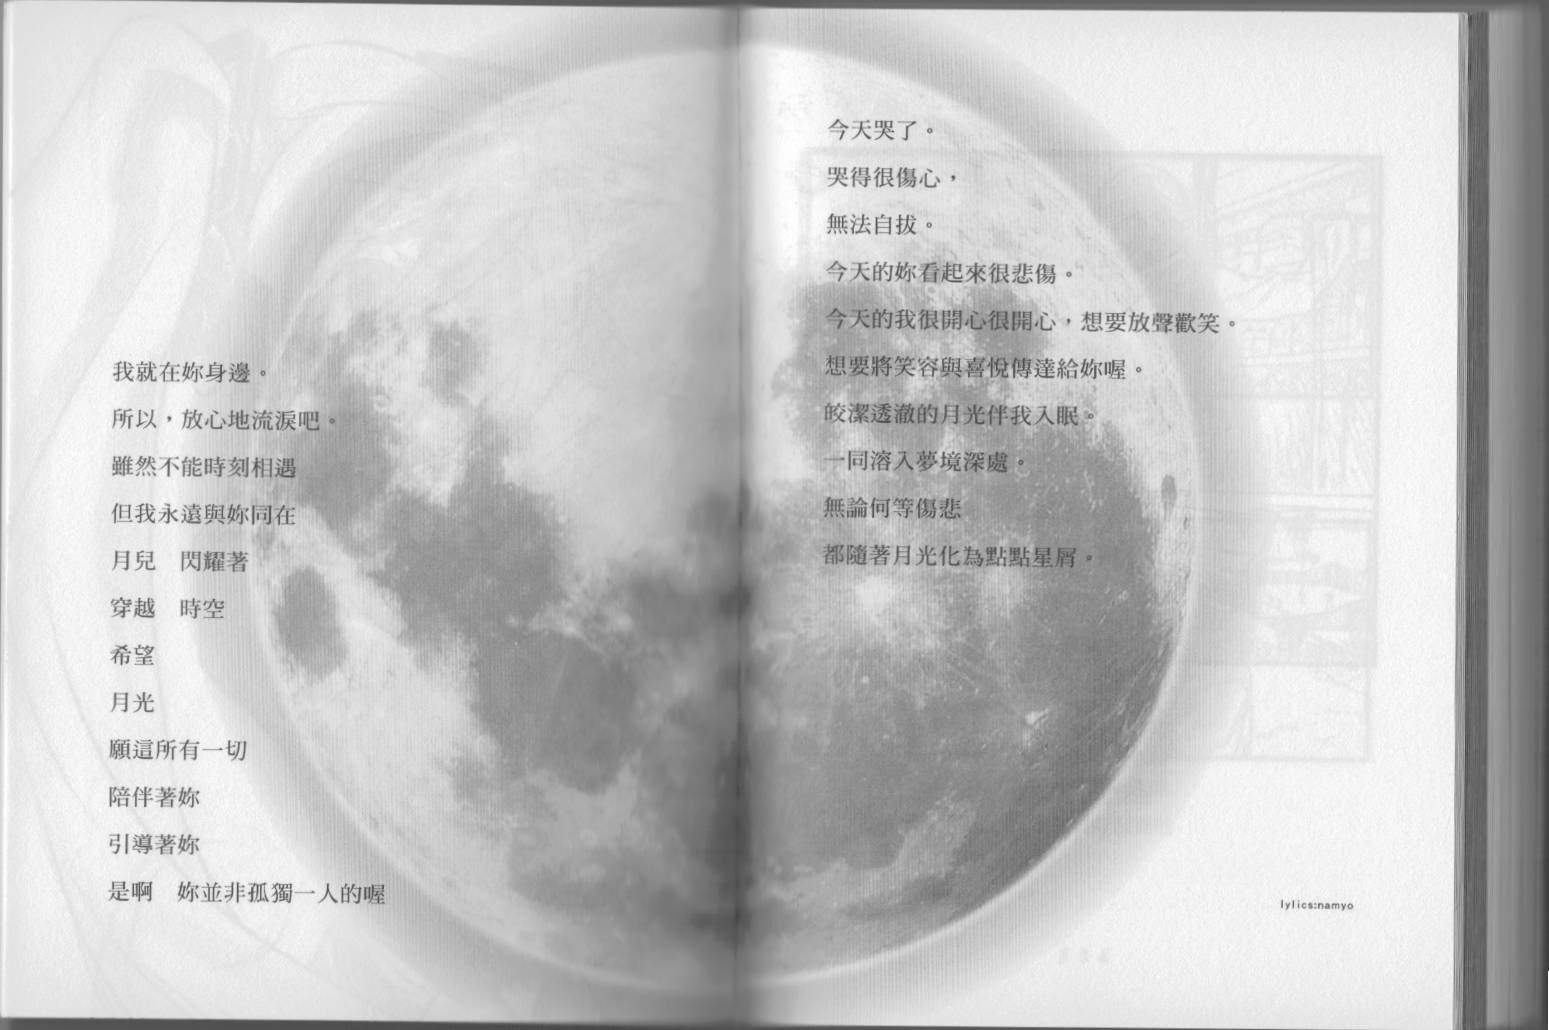 今天哭了。
哭得很傷心，
無法自拔。
今天的妳看起來很悲傷。
今天的我很開心很開心，想要放聲歡笑。
想要將笑容與喜悅傳達給妳喔。
皎潔透澈的月光伴我入眠。
一同溶入夢境深處。
無論何等傷悲
都隨著月光化為點點星屑。
lylics:namyo
我就在妳身邊。
所以，放心地流淚吧。
雖然不能時刻相遇
但我永遠與妳同在
月兒　閃耀著
穿越　時空
希望
月光
願這所有一切
陪伴著妳
引導著妳
是啊　妳並非孤獨一人的喔